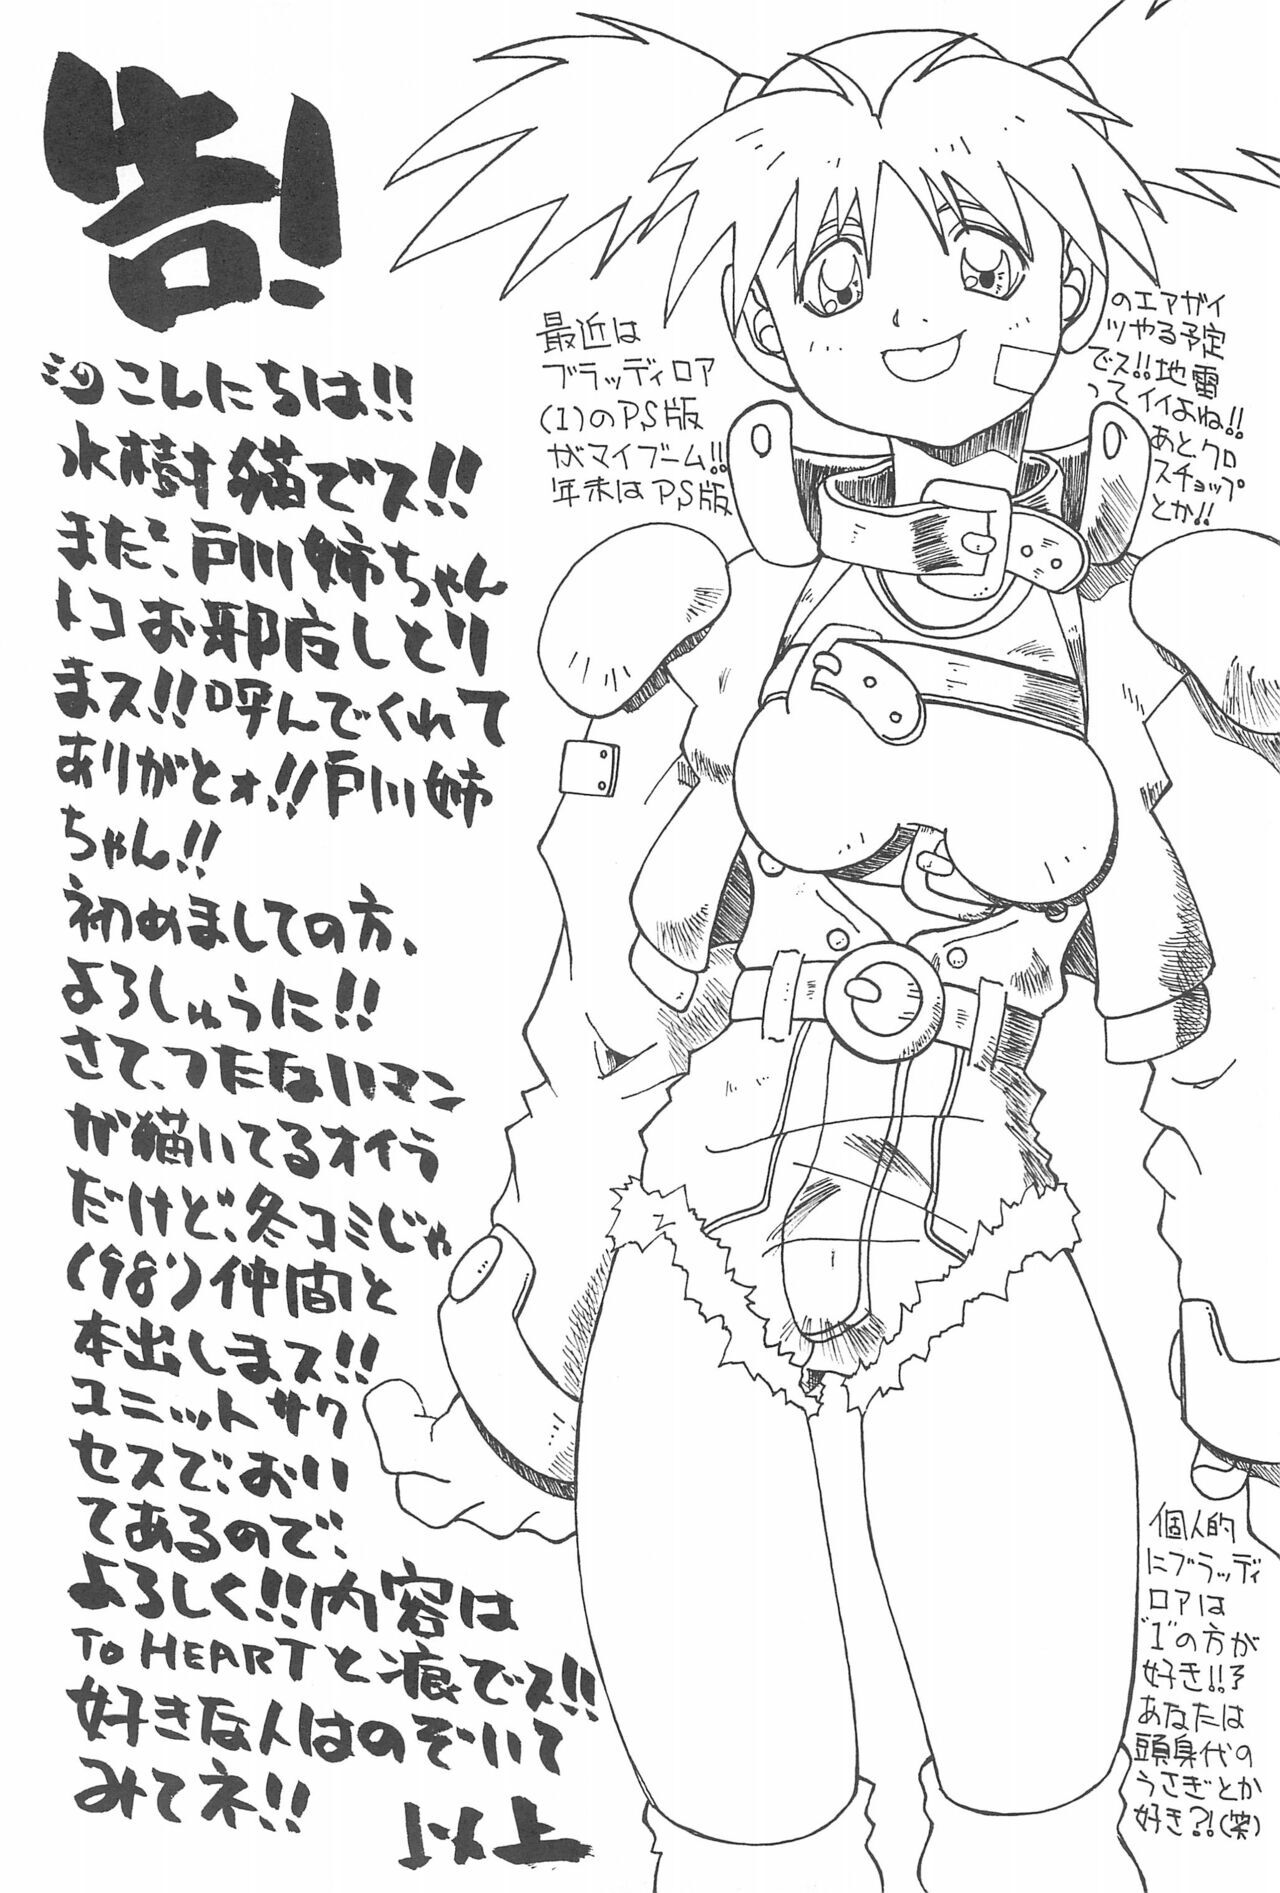 告!
こんにちは!!
水樹猫でス!!
また、戸川姉ちゃん
トコお邪广しとり
まス!!呼んでくれて
ありがとォ!!戸川姉
ちゃん!!
初めましての方、
よろしゅうに!!
さて、つたないマン
が描いてるオイラ
だけど、冬コミじゃ
(98')仲間と
本出しまス!!
ユニットサク
セスで、おい
てあるので、
よろしく!!内容は
TO HEARTと痕でス!!
好きな人はのぞいて
みてネ!!
以上
最近は
ブラッディロア
(1)のPS版
がマイブーム!!
年末はPS版
のエアガイ
ツやる予定
でス!!地雷
ってイイよね!!
あと、クロ
スチョップ
とか!!
個人的
にブラッディ
ロアは
"1"の方が
好き!!?
あなたは
頭身代の
うさぎとか
好き?!(笑)